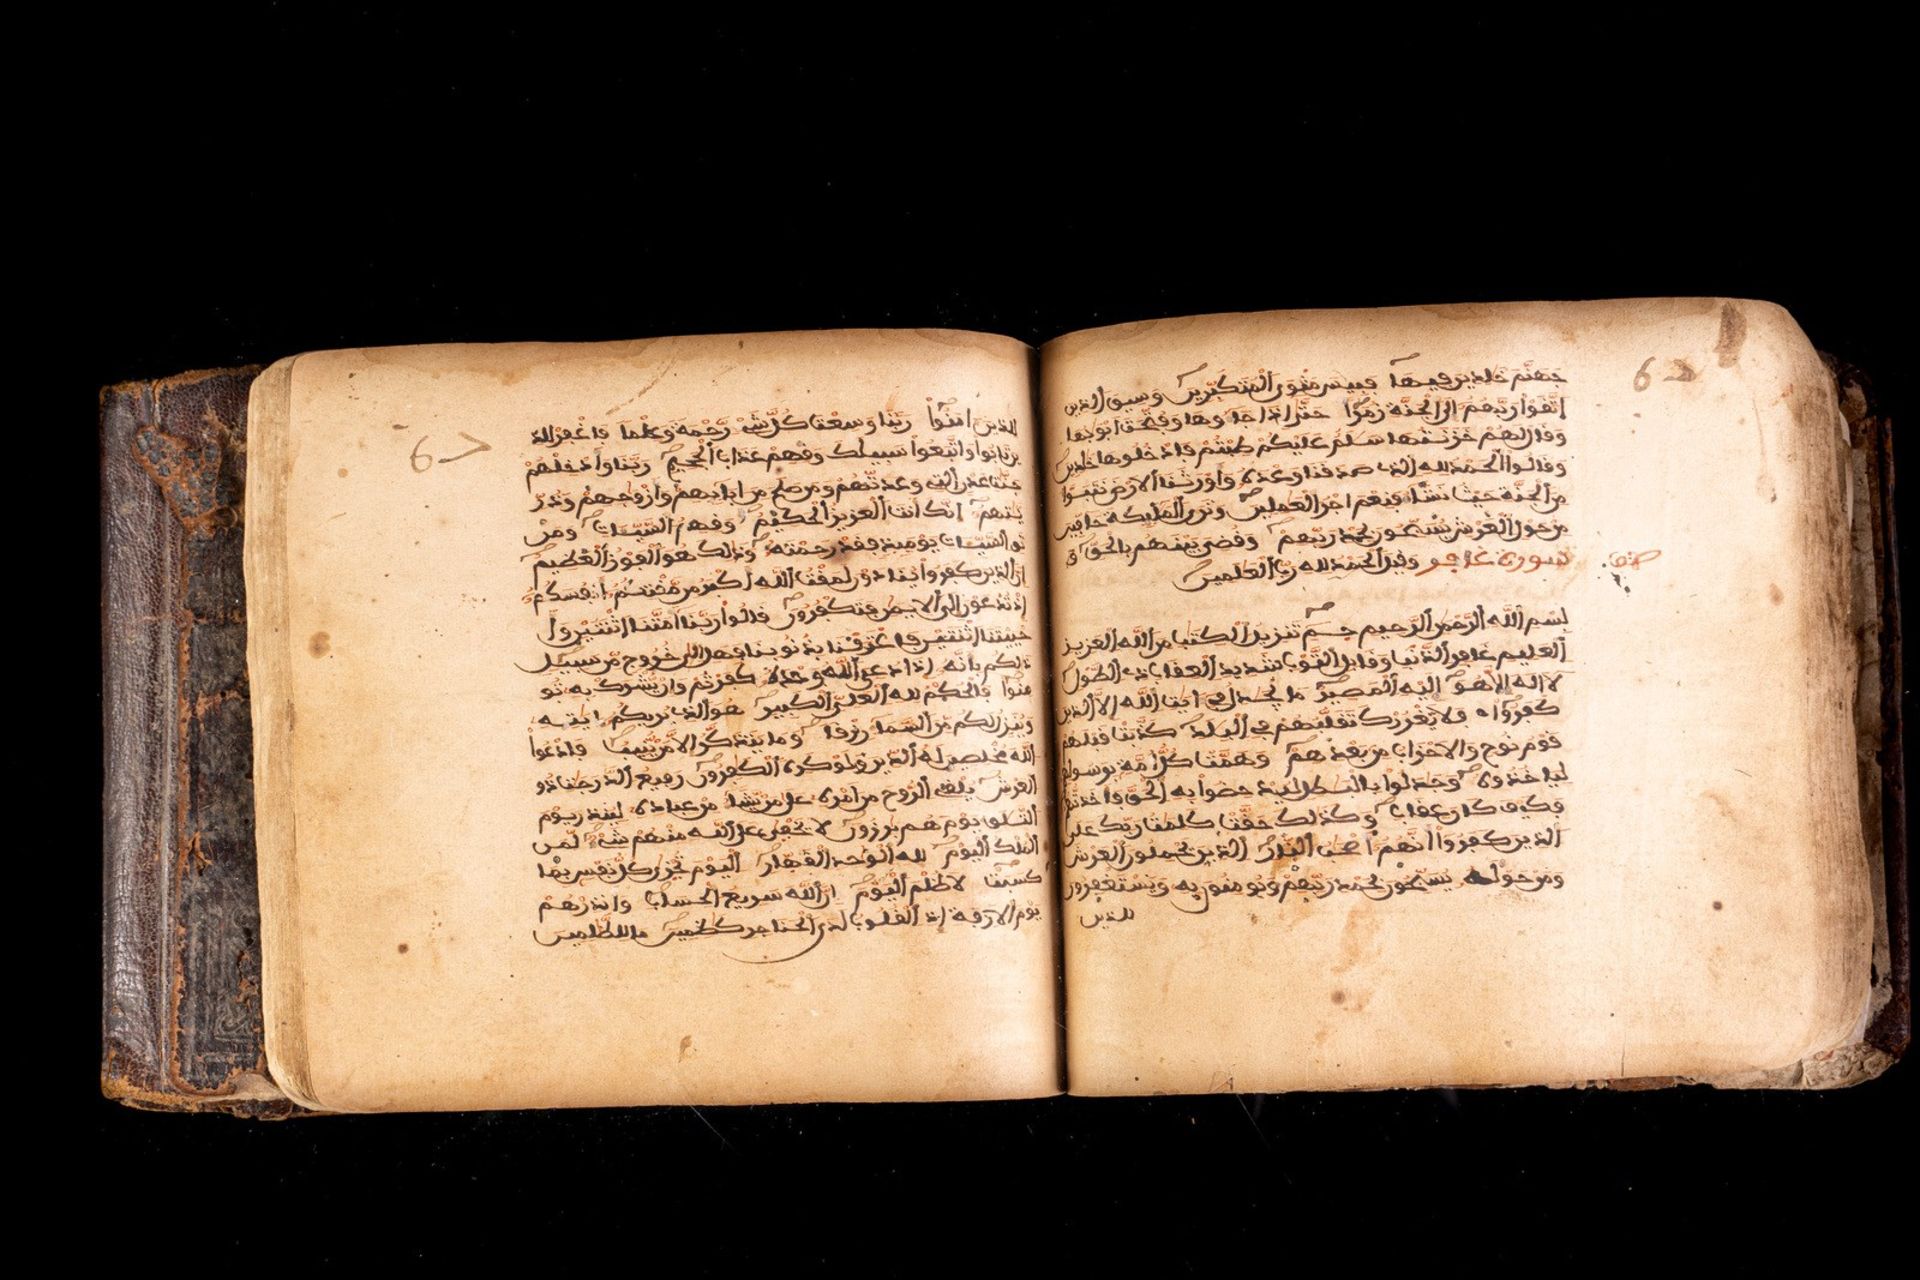 جهنم خلدين فيها فبيس مثوى المتكبرين وسيق الذين
اتقوا ربهم الى الجنة زمرا حتى اذا جاوها وفتحت ابوبها
وقال لهم خزنتها سلم عليكم طبتم فادخلوها خلدين
وقالوا الحمد لله الذى صدقنا وعده واورثنا الارض نتبوا
من الجنة حيث نشا فنعم اجر العملين وترى المليكة حافين
من حول العرش يسبحون بحمد ربهم وقضى بينهم بالحق و
قيل الحمد لله رب العلمين
سورة غافر
بسم الله الرحمن الرحيم حم تنزيل الكتب من الله العزيز
العليم غافر الذنب وقابل التوب شديد العقاب ذى الطول
لا اله الا هو اليه المصير ما يجدل فى ايت الله الا الذين
كفروا فلا يغررك تقلبهم فى البلد كذبت قبلهم
قوم نوح والاحزاب من بعدهم وهمت كل امة برسولهم
لياخذوه وجدلوا بالبطل ليدحضوا به الحق فاخذتهم
فكيف كان عقاب وكذلك حقت كلمت ربك على
الذين كفروا انهم اصحب النار الذين يحملون العرش
ومن حوله يسبحون بحمد ربهم ويومنون به ويستغفرون
للذين
للذين امنوا ربنا وسعت كل شى رحمة وعلما فاغفر للذ
ين تابوا واتبعوا سبيلك وقهم عذاب الجحيم ربنا وادخلهم
جنت عدن التى وعدتهم ومن صلح من ابايهم وازوجهم وذر
يتهم انك انت العزيز الحكيم وقهم السيات ومن
تق السيات يوميذ فقد رحمته وذلك هو الفوز العظيم
ان الذين كفروا ينادون لمقت الله اكبر من مقتكم انفسكم
اذ تدعون الى الايمن فتكفرون قالوا ربنا امتنا اثنتين وا
حييتنا اثنتين فاعترفنا بذنوبنا فهل الى خروج من سبيل
ذلكم بانه اذا دعى الله وحده كفرتم وان يشرك به تو
منوا فالحكم لله العلى الكبير هو الذى يريكم ايته
وينزل لكم من السما رزقا وما يتذكر الا من ينيب فادعوا
الله مخلصين له الدين ولو كره الكفرون رفيع الدرجت ذو
العرش يلقى الروح من امره على من يشا من عباده لينذر يوم
التلق يوم هم برزون لا يخفى على الله منهم شى لمن
الملك اليوم لله الوحد القهار اليوم تجزى كل نفس بما
كسبت لا ظلم اليوم ان الله سريع الحساب وانذرهم
يوم الازفة اذ القلوب لدى الحناجر كظمين ما للظلمين